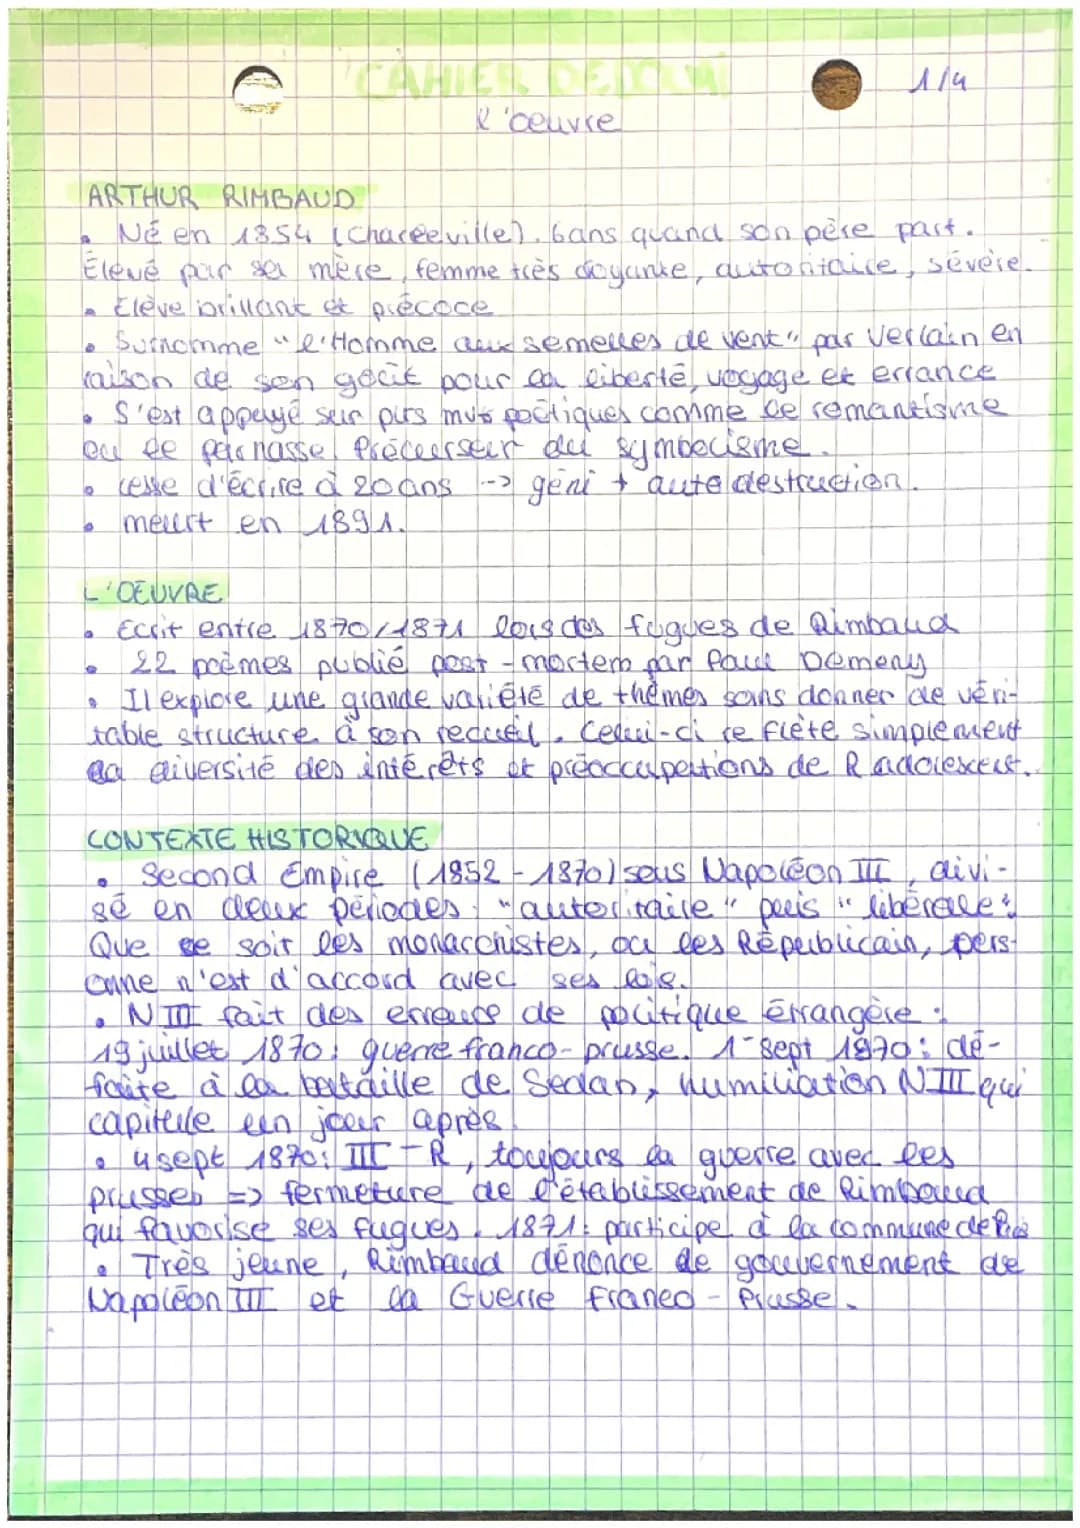 CAHIER DE DOUAI
1/4
l'oeuvre
ARTHUR RIMBAUD
• Né en 1854 (Charleville). 6ans quand son père part.
Élevé par sa mère, femme très croyante, autoritaire, sévère.
• Élève brillant et précoce
• Surnomme "l'Homme aux semelles de vent" par Verlain en
raison de son goût pour la liberté, voyage et errance
• S'est appuyé sur plrs mvts poétiques comme le romantisme
ou le parnasse. Précurseur du symbolisme.
• cesse d'écrire à 20ans --> géni + auto destruction.
• meurt en 1891.
L'OEUVRE
• Ecrit entre 1870/1871 lors des fugues de Rimbaud
• 22 poèmes publié post-mortem par Paul Demeny
• Il explore une grande variété de thèmes sans donner de véri-
table structure à son recueil. Celui-ci reflète simplement
la diversité des intérêts et préoccupations de R adolescent.
CONTEXTE HISTORIQUE
• Second Empire (1852-1870) sous Napoléon III, divi-
sé en deux périodes : "autoritaire" puis "libérale".
Que ce soit les monarchistes, ou les Républicain, pers-
onne n'est d'accord avec ses lois.
• N III fait des erreurs de politique étrangère :
19 juillet 1870: guerre franco-prusse. 1 sept 1870: dé-
faite à la bataille de Sedan, humiliation N III qui
capitule un jour après.
• 4 sept 1870: III - R, toujours la guerre avec les
prusses => fermeture de l'établissement de Rimbaud
qui favorise ses fugues. 1871: participe à la commune de Paris
• Très jeune, Rimbaud dénonce le gouvernement de
Napoléon III et la Guerre Franco-Prusse.